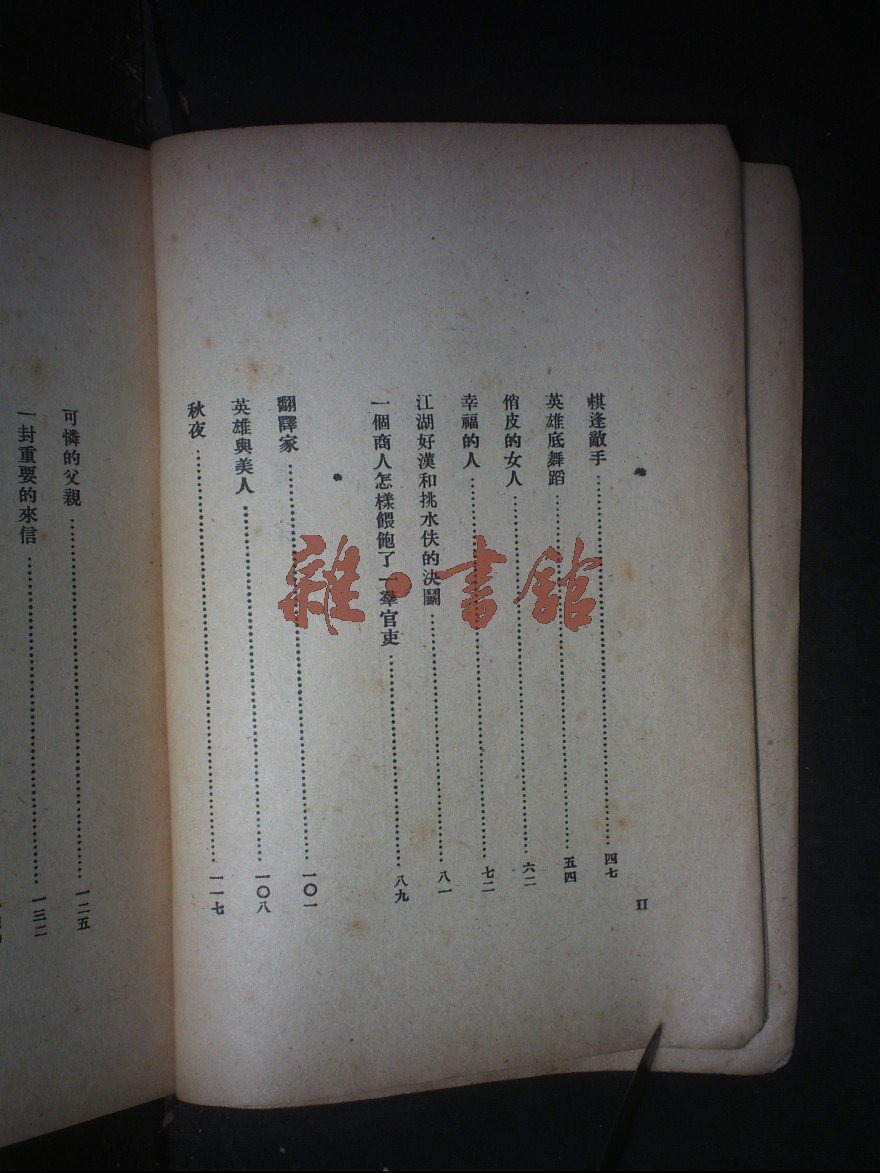 棋逢敵手……四七
英雄底舞蹈……五四
俏皮的女人……六二
幸福的人……七二
江湖好漢和挑水伕的決鬭……八一
一個商人怎樣餵飽了一羣官吏……八九
翻譯家……一〇一
英雄與美人……一〇八
秋夜……一一七
II
可憐的父親……一二五
一封重要的來信……一三二
雜·書館